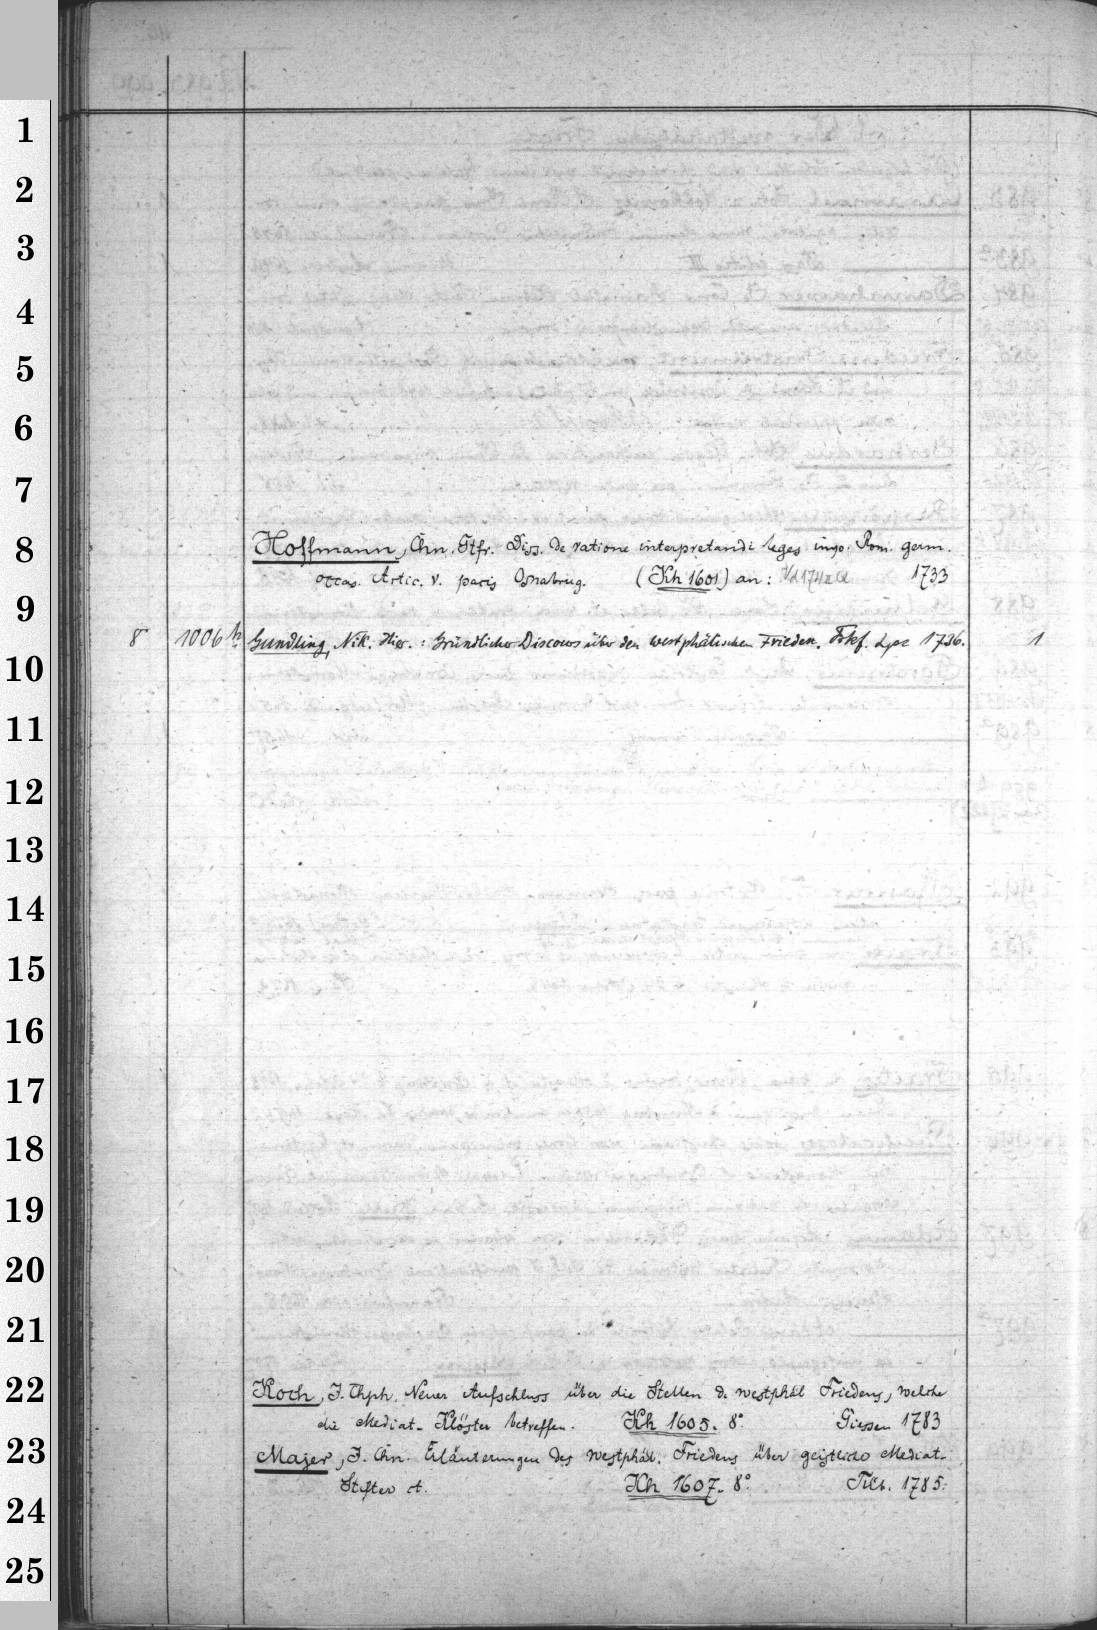 1
2
3
4
5
6
7
8
9
10
11
12
13
14
15
16
17
18
19
20
21
22
23
24
25
Hoffmann, Chn. Gtfr. Diss. de ratione interpretandi leges imp. Rom. germ.
occas. Artic. V. pacis Osnabrug. (Kh 1601) an: 1733
8 1006 b Gundling, Nik. Hier.: Gründlicher Discours über den westphälischen Frieden. Frkf. Lpz 1736. 1
Koch, J. Chph. Neuer Aufschluss über die Stellen d. westphäl Friedens, welche
die Mediat-Klöster betreffen. Kh 1605. 8° Giessen 1783
Majer, J. Chn. Erläuterungen des westphäl. Friedens über geistliche Mediat-
Stifter ct. Kh 1607. 8° Tüb. 1785.